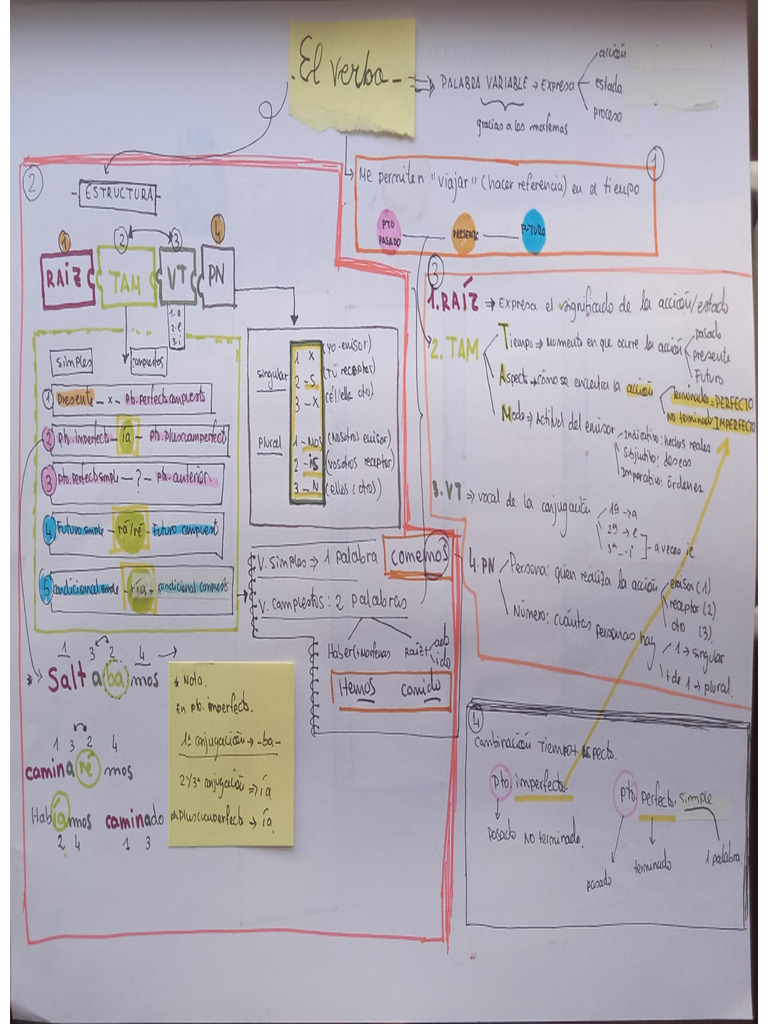 El verbo
PALABRA VARIABLE → EXPRESA
acción
estado
proceso
gracias a los morfemas
1
Me permiten "viajar" (hacer referencia) en el tiempo
PTO PASADO
PRESENTE
FUTURO
2
- ESTRUCTURA -
1 2 3 4
RAÍZ TAM VT PN
1.a
2.e
3.i
simples compuestos
1 Presente - x - pto. perfecto compuesto
2 pto. imperfecto - ía - pto. pluscuamperfecto
3 pto. perfecto simple - ? - pto. anterior
4 Futuro simple - rá/ré - Futuro compuesto
5 condicional simple - ría - condicional compuesto
singular
1 X (yo emisor)
2 - S (tú receptor)
3 - X (él/ella otro)
Plural
1 - MOS (nosotros emisor)
2 - IS (vosotros receptor)
3 - N (ellos otros)
V. simples → 1 palabra comemos
V. compuestos: 2 palabras
Haber(+morfemas Raíz+ ado
ido
Hemos comido
1 3 2 4 →
* Saltabamos
1 3 2 4
caminarémos
Habíamos caminado
2 4 1 3
* Nota.
En pto. imperfecto.
1ª conjugación → -ba-
2ª y 3ª conjugación → ía
pto. pluscuamperfecto → ía
3
1. RAÍZ → Expresa el significado de la acción/estado
2. TAM
Tiempo → Momento en que ocurre la acción
pasado
presente
Futuro
Aspecto → cómo se encuentra la acción
Terminada = PERFECTO
No terminado: IMPERFECTO
Modo → Actitud del emisor
Indicativo: hechos reales
Subjuntivo: deseos
Imperativo: órdenes
3. VT → vocal de la conjugación
1ª → a
2ª → e
3ª - i
- a veces ie
4. PN
Persona: quien realiza la acción
emisor (1)
receptor (2)
otro (3).
Número: cuántas personas hay
1 → singular
+ de 1 → plural.
4
Combinación Tiempo + aspecto.
pto imperfecto.
pasado No terminado.
pto. perfecto simple
pasado
terminado
1 palabra.